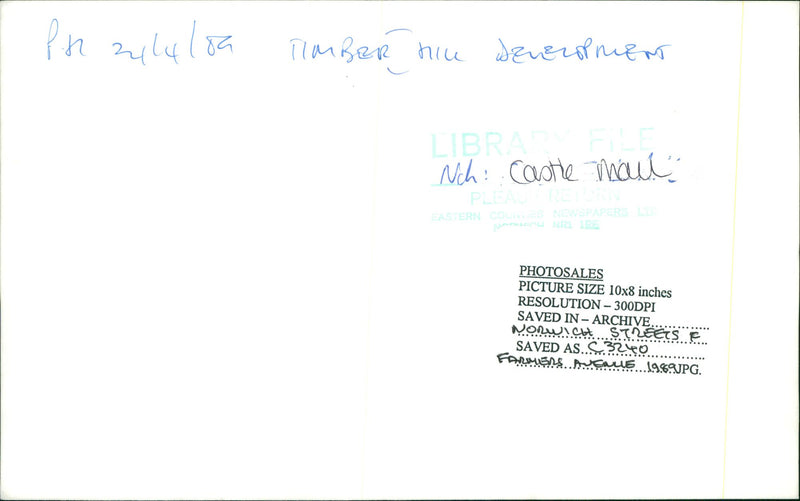 24/4/89 TIMBER HILL DEVELOPMENT
LIBRARY FILE
Nch: Castle Mall
PLEASE RETURN
EASTERN COUNTIES NEWSPAPERS LTD
NORWICH NR1 1RE
PHOTOSALES
PICTURE SIZE 10x8 inches
RESOLUTION – 300DPI
SAVED IN – ARCHIVE
NORWICH STREETS F
SAVED AS C3240
FARMERS AVENUE 1989JPG.